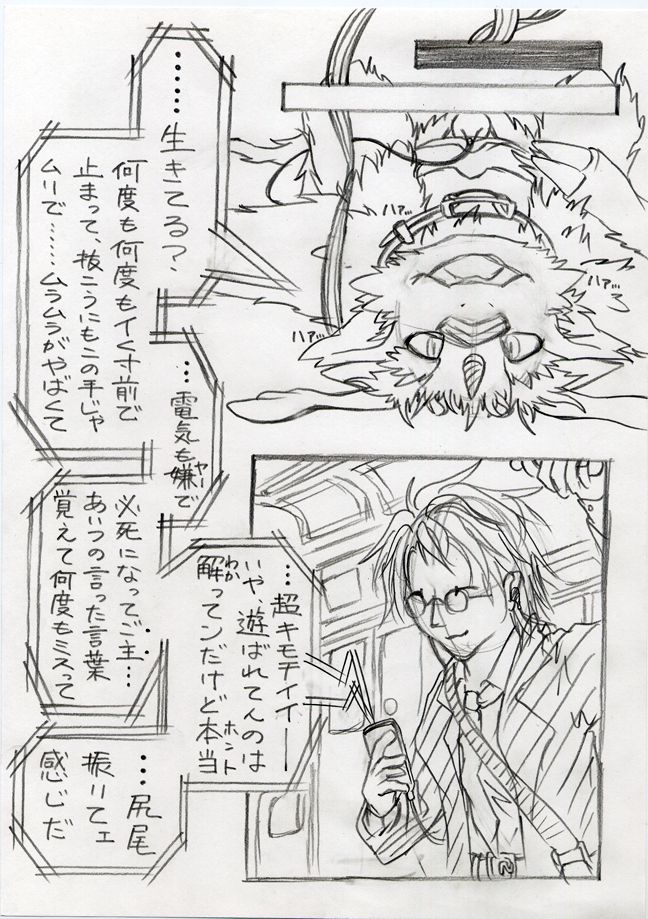 ……生きてる？
何度も何度もイく寸前で
止まって、抜こうにもこの手じゃ
ムリで……ムラムラがやばくて
…電気も嫌で
ヤー
必死になってご主…
あいつの言った言葉
覚えて何度もミスって
…超キモチイイ――
いや、遊ばれてんのは
解ってンだけど本当
わか
ホント
…尻尾
振りてェ
感じだ
ハァ…
ハァ…
ハァ…